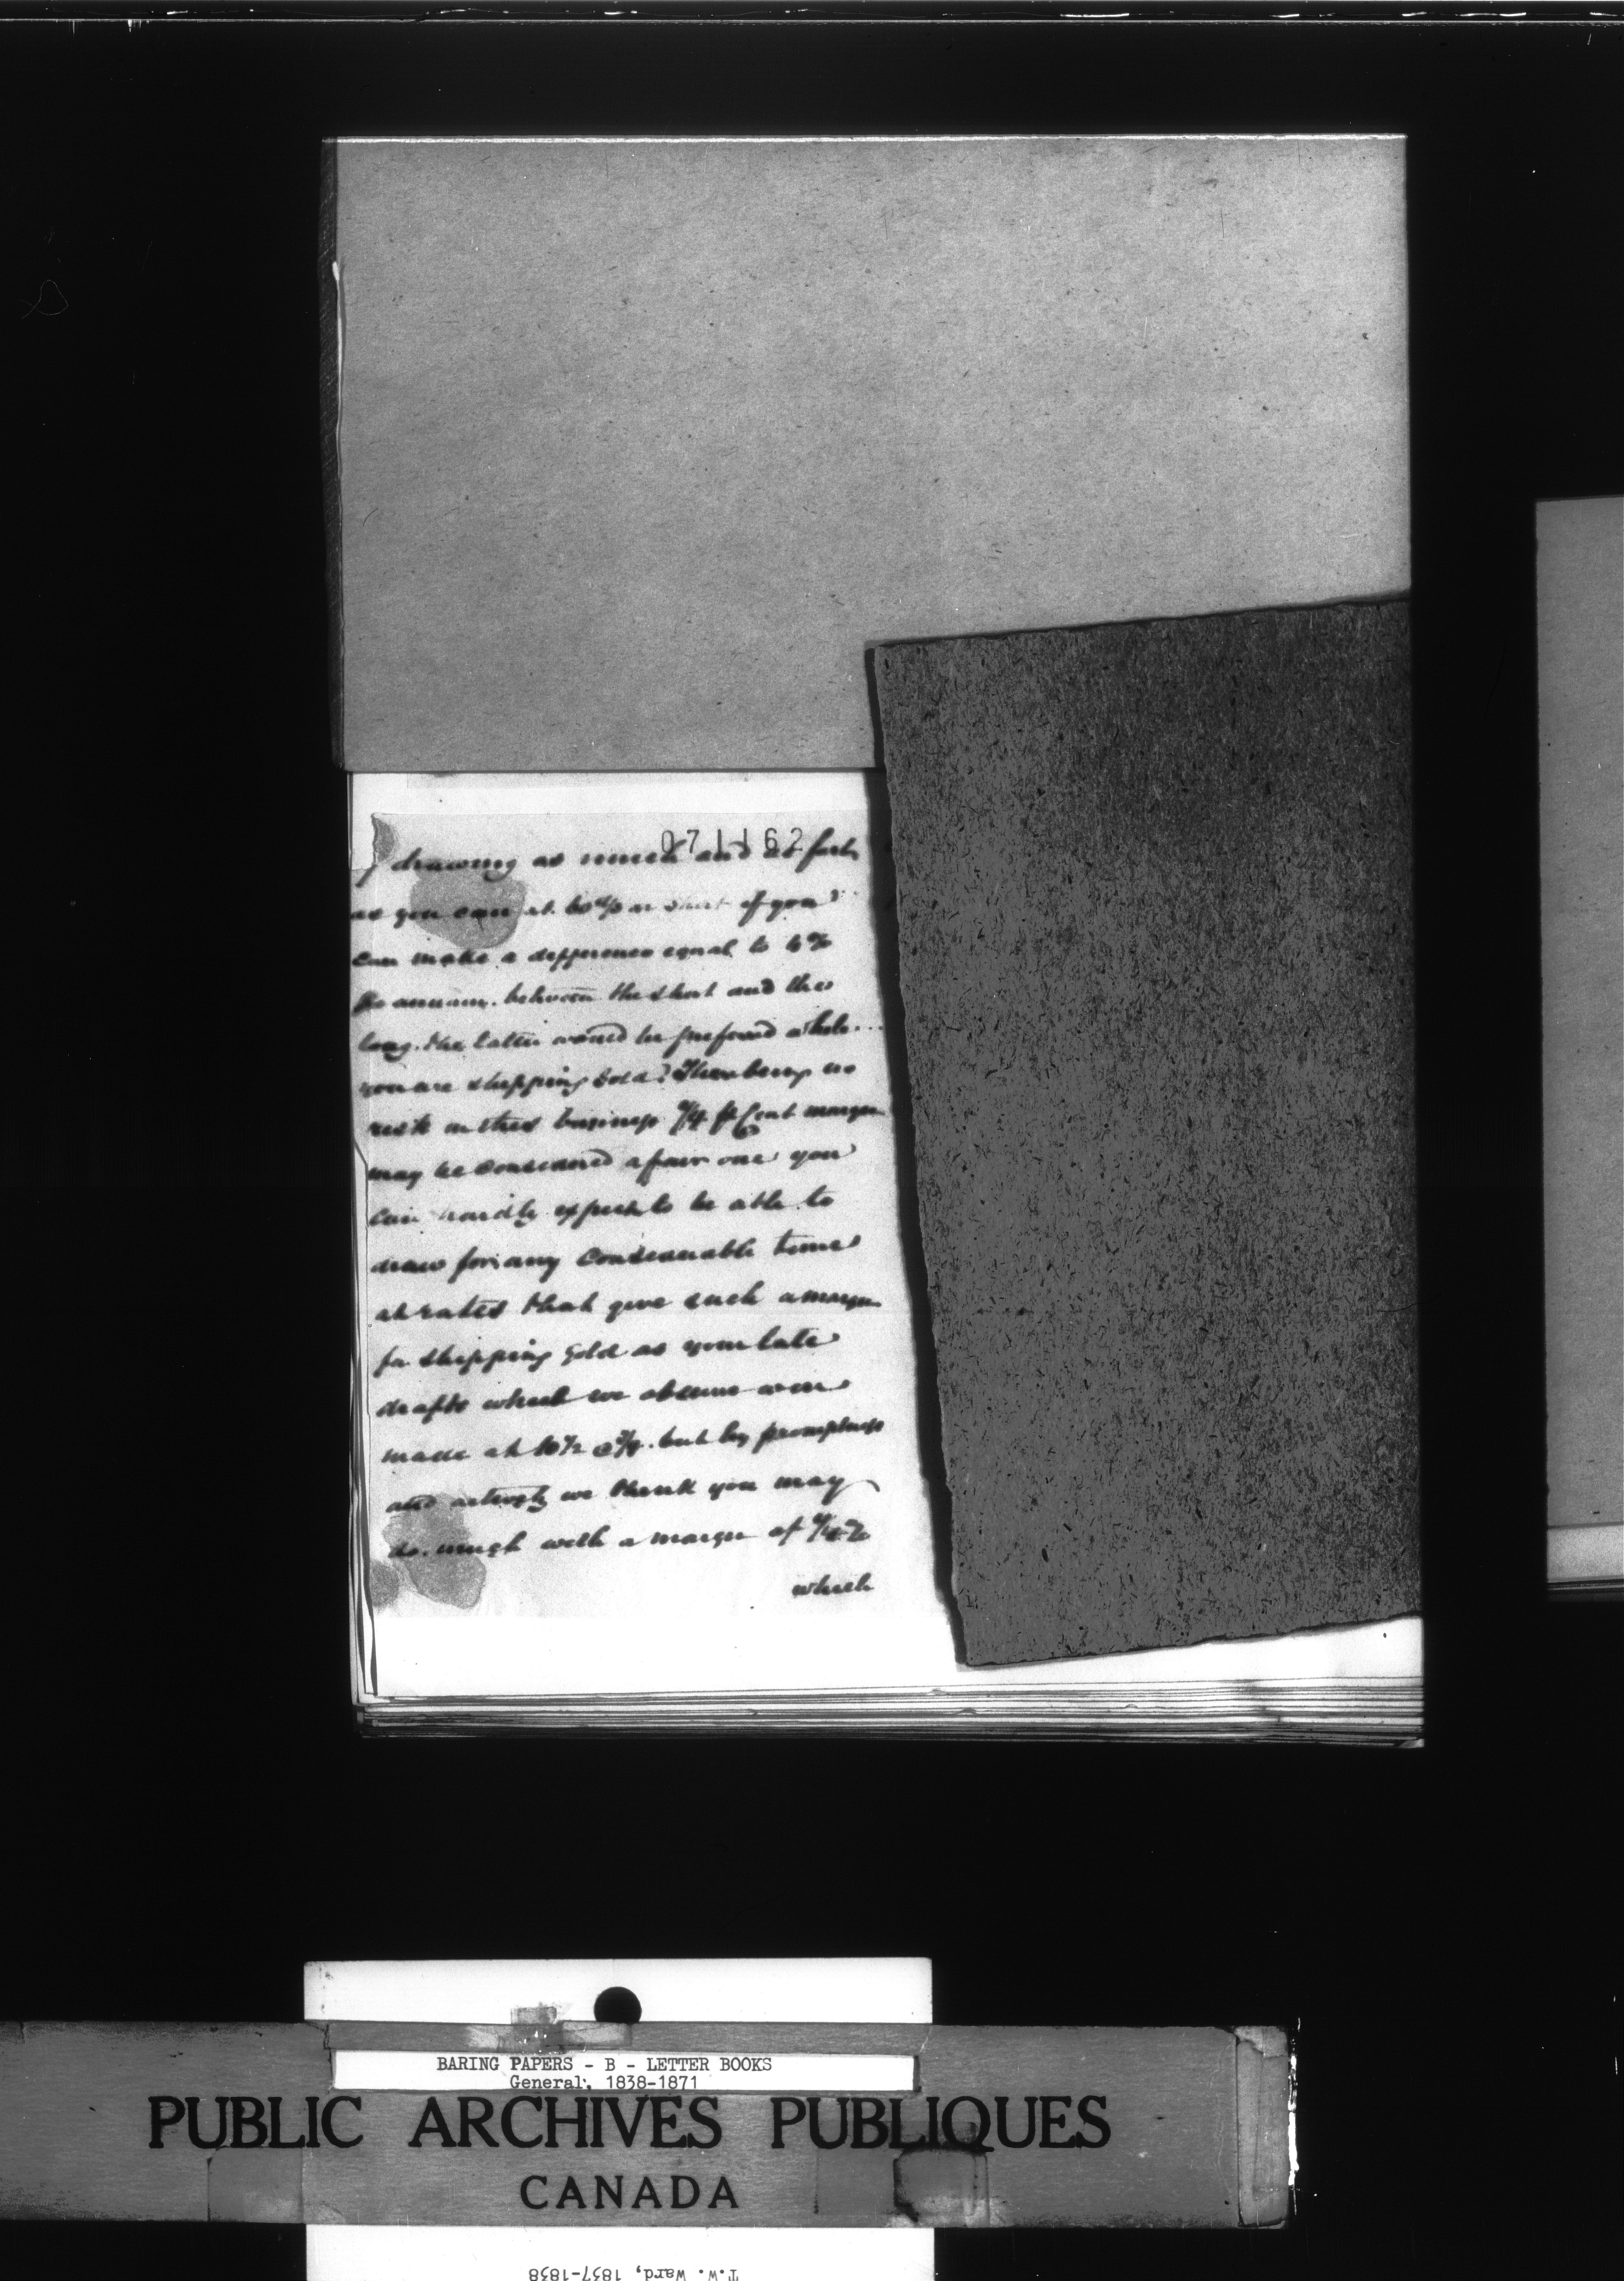 071162
drawing as much and as fast
as you can at 60 d/s or short if you
can make a difference equal to 6%
per annum. between the short and the
long. the latter would be preferred while...
you are shipping Gold? There being no
risk in this business ¼ p Cent margin
may be considered a fair one you
can hardly expect to be able to
draw for any considerable time
at rates that give such a margin
for shipping gold as your late
drafts which we observe were
made at 10½ @ ¾. but by promptness
and activity we think you may
do. much with a margin of ¼ %
which
BARING PAPERS - B - LETTER BOOKS
General, 1838-1871
PUBLIC ARCHIVES PUBLIQUES
CANADA
T.W. Ward, 1837-1838